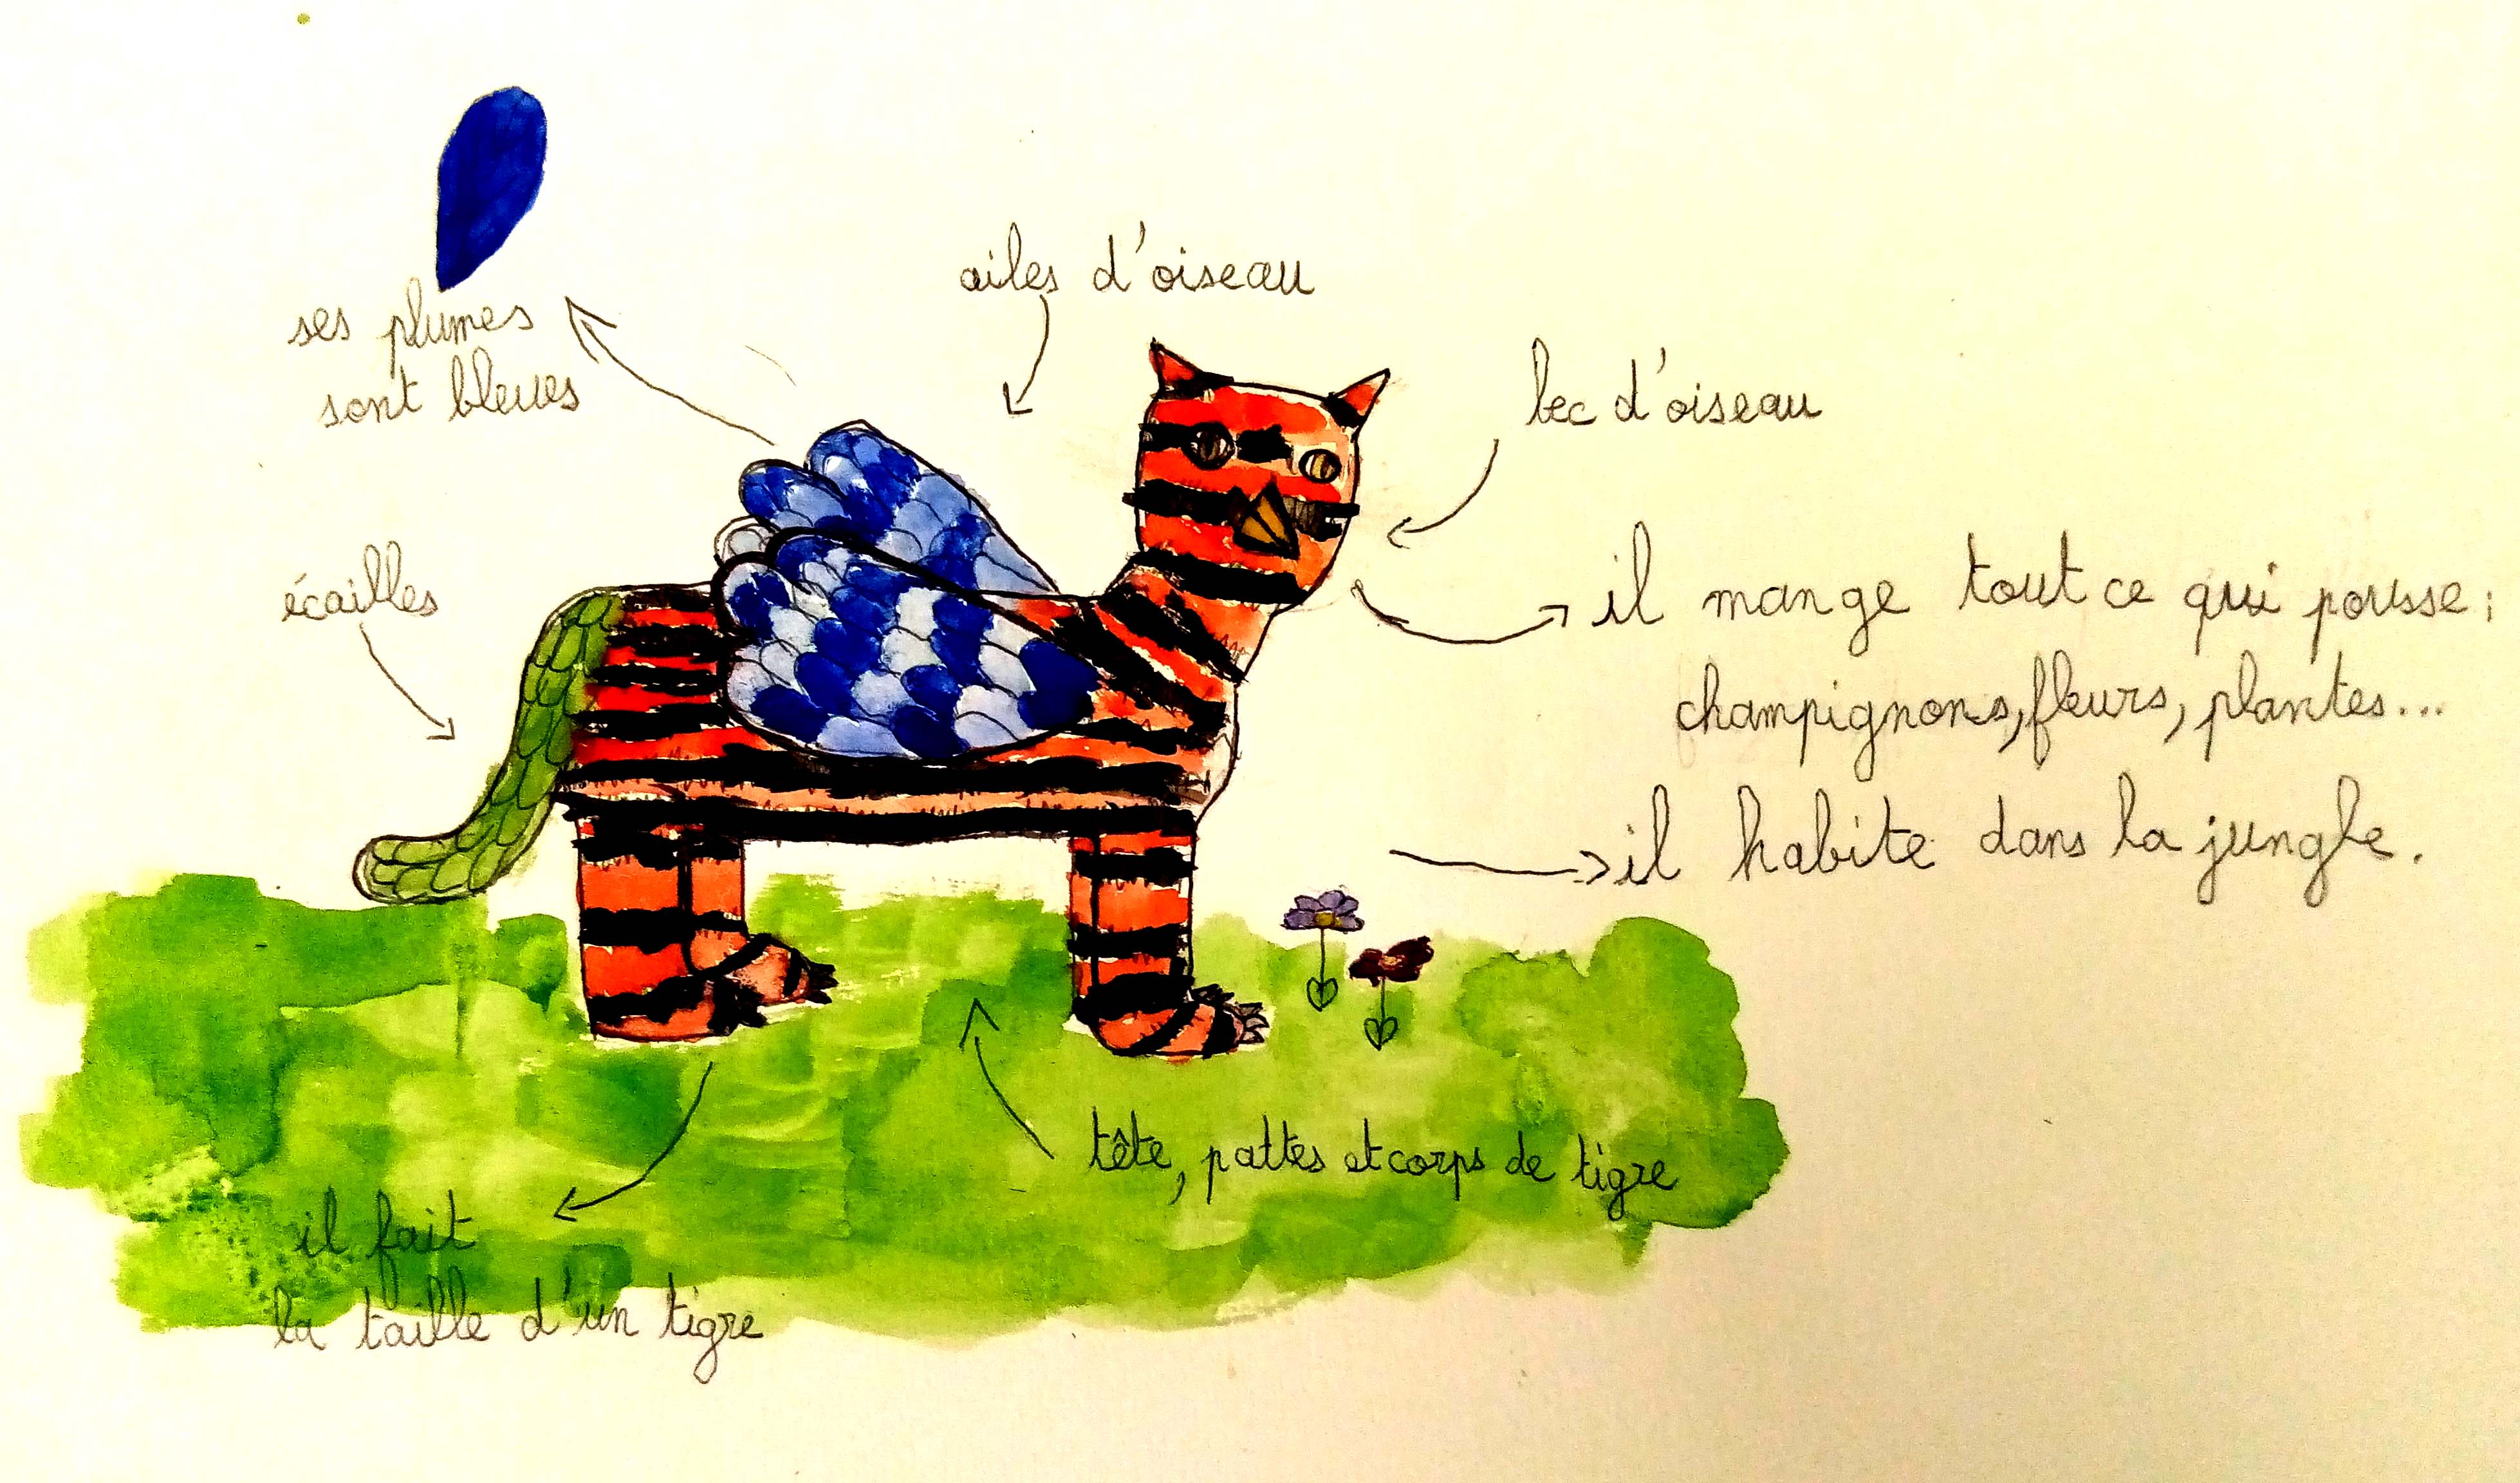 ailes d'oiseau
ses plumes
sont bleues
bec d'oiseau
écailles
il mange tout ce qui pousse :
champignons, fleurs, plantes...
il habite dans la jungle.
tête, pattes et corps de tigre
il fait
la taille d'un tigre